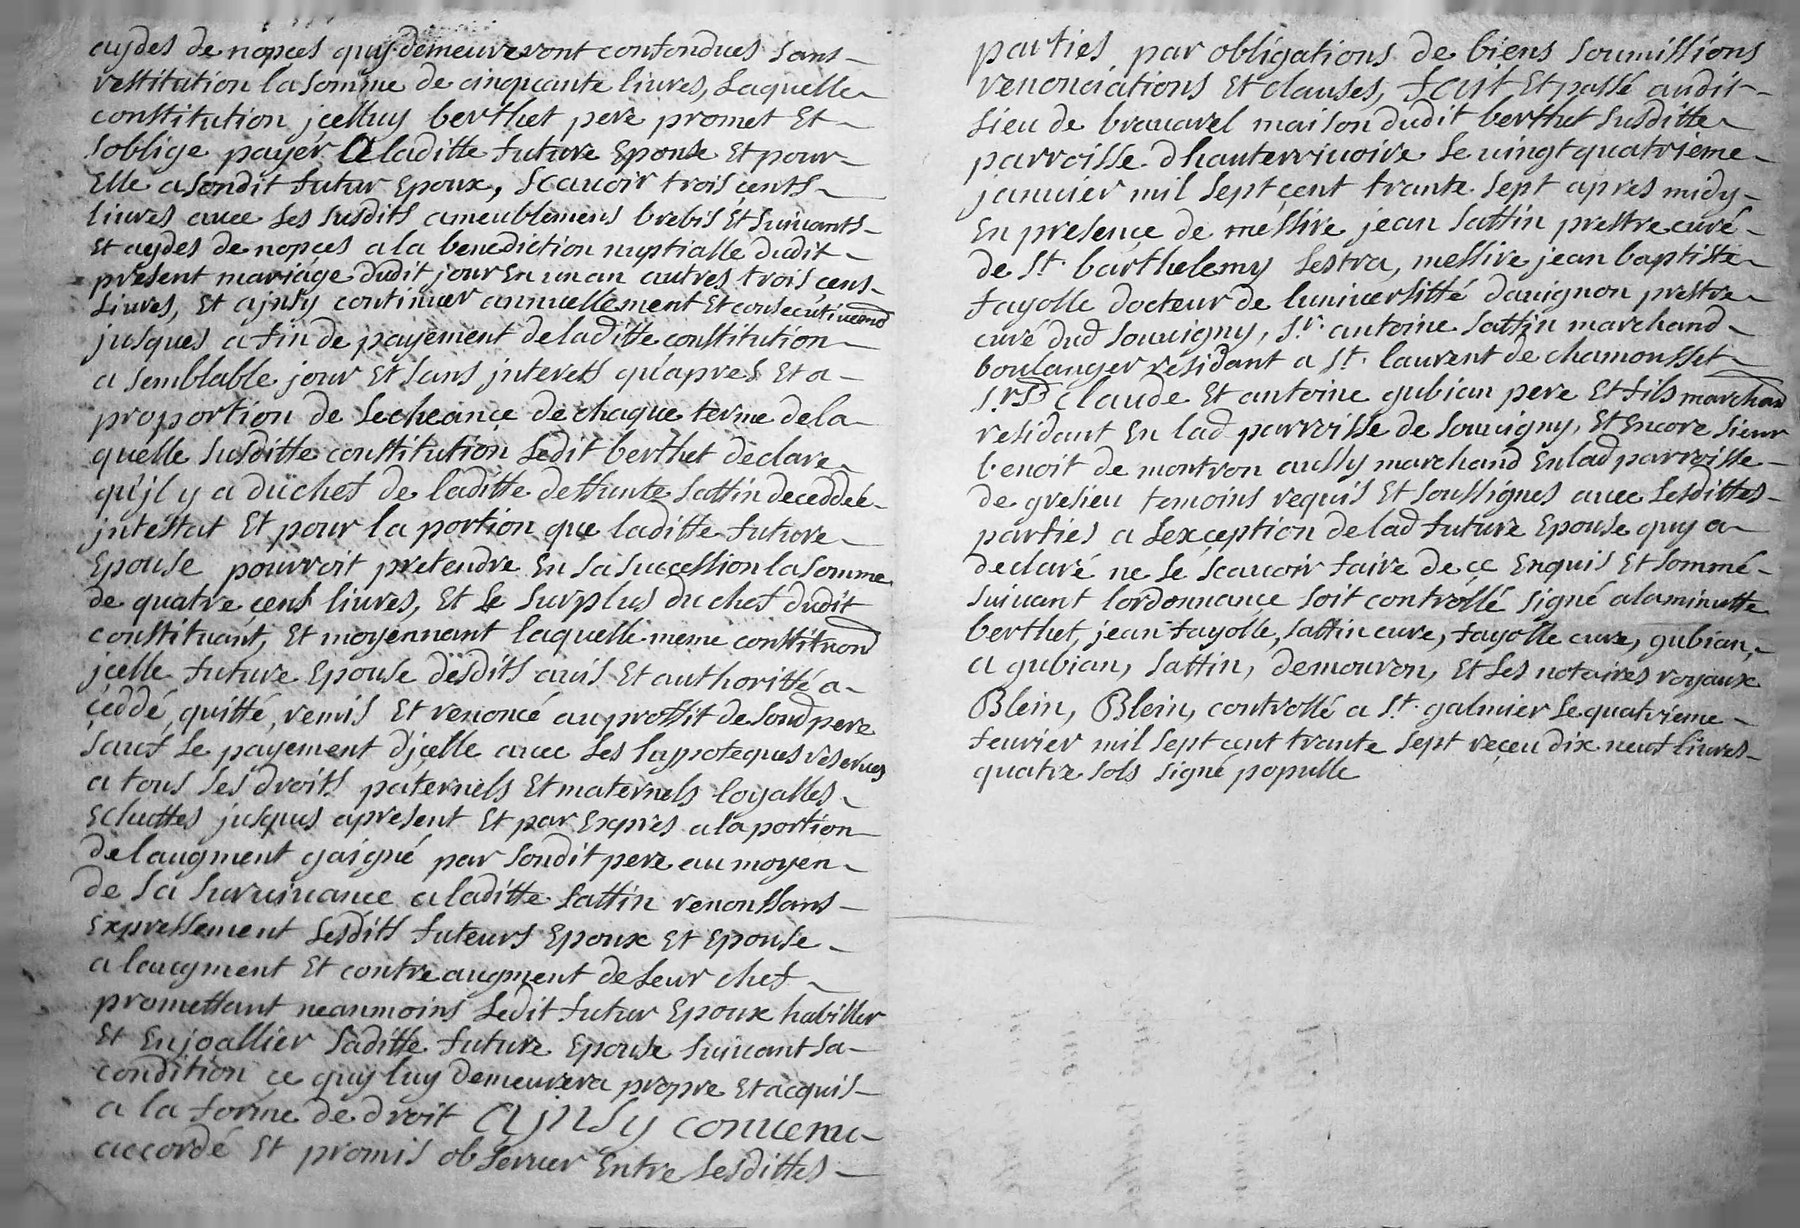 aydes de nopces quy demeureront confondues sans
restitution la somme de cinquante livres, Laquelle
constitution jcelluy berthet pere promet Et
soblige payer A laditte future Epouse Et pour
Elle a sondit futur Epoux, Scavoir trois cents
livres avec les susdits ameublemens brebis Et suivants
Et aydes de nopces a la benediction nuptialle dudit
present mariage dudit jour En un an autres trois cens
Livres, Et ajnsy continuer annuellement Et consecutivemt
jusques a fin de payement de laditte constitution
a semblable jour Et sans jnterets qu'apres Et a
proportion de Lecheance de chaque terme de la
quelle susditte constitution Ledit berthet declare
qu'jl y a du chef de laditte deffunte Sattin deceddée
jntestat Et pour la portion que laditte future
Epouse pourroit pretendre En sa succession la somme
de quatre cens livres, Et Le surplus du chef dudit
constituant, Et moyennant laquelle meme constituon
jcelle future Epouse desdits avis Et authoritté a
ceddé, quitté, remis Et renoncé au proffit de sond pere
sauf Le payement d'jcelle avec Les hypoteques reservés
a tous ses droits paternels Et maternels loyalles
Echuttes jusques apresent Et par Exprès a la portion
de laugment gaigné par sondit pere au moyen
de sa survivance a laditte Sattin renonssans
Expressement Lesdits futeurs Epoux Et Epouse
a laucgment Et contre augment de Leur chef
promettant neanmoins Ledit futur Epoux habiller
Et Enjoallier Laditte future Epouse suivant sa
condition ce quy luy demeurera propre Et acquis
a la forme de droit Ajnsy convenu
accordé Et promis observer Entre Lesdittes
parties par obligations de biens soumissions
renonciations Et clauses, fait Et passé audit
Lieu de bravarel maison dudit berthet susditte
parroisse dhauterivoire Le vingt quatrieme
janvier mil sept cent trante sept apres midy
En presence de messire jean Sattin prestre curé
de St. barthelemy Lestra, messire jean baptiste
fayolle docteur de luniversitté davignon prestre
curé dud souvigny, sr. antoine Sattin marchand
boulanger residant a St. laurent de chamousset
Srs Claude Et antoine gubian pere Et fils marchand
residant En lad parroisse de souvigny, Et Encore sieur
benoit de montron aussy marchand En lad parroisse
de gresieu temoins requis Et soussignes avec Lesdittes
parties a Lexception de lad future Epouse quy a
declaré ne Le scavoir faire de ce Enquis Et sommé
suivant lordonnance soit controllé signé a la minutte
berthet, jean fayolle, Sattin cure, fayolle cure, gubian,
a gubian, Sattin, demouron, Et Les notaires royaux
Blein, Blein, controllé a St. galmier Le quatrieme
fevrier mil sept cent trante sept reçeu dix neuf livres
quatre sols signé populle